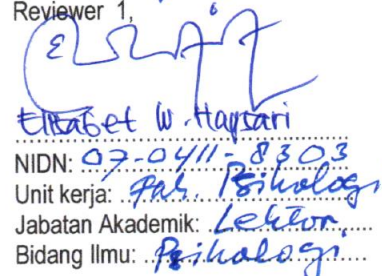 Reviewer 1,
Elisabet W. Hapsari
NIDN: 07-0411-8303
Unit kerja: Fak. Psikologi
Jabatan Akademik: Lektor
Bidang Ilmu: Psikologi